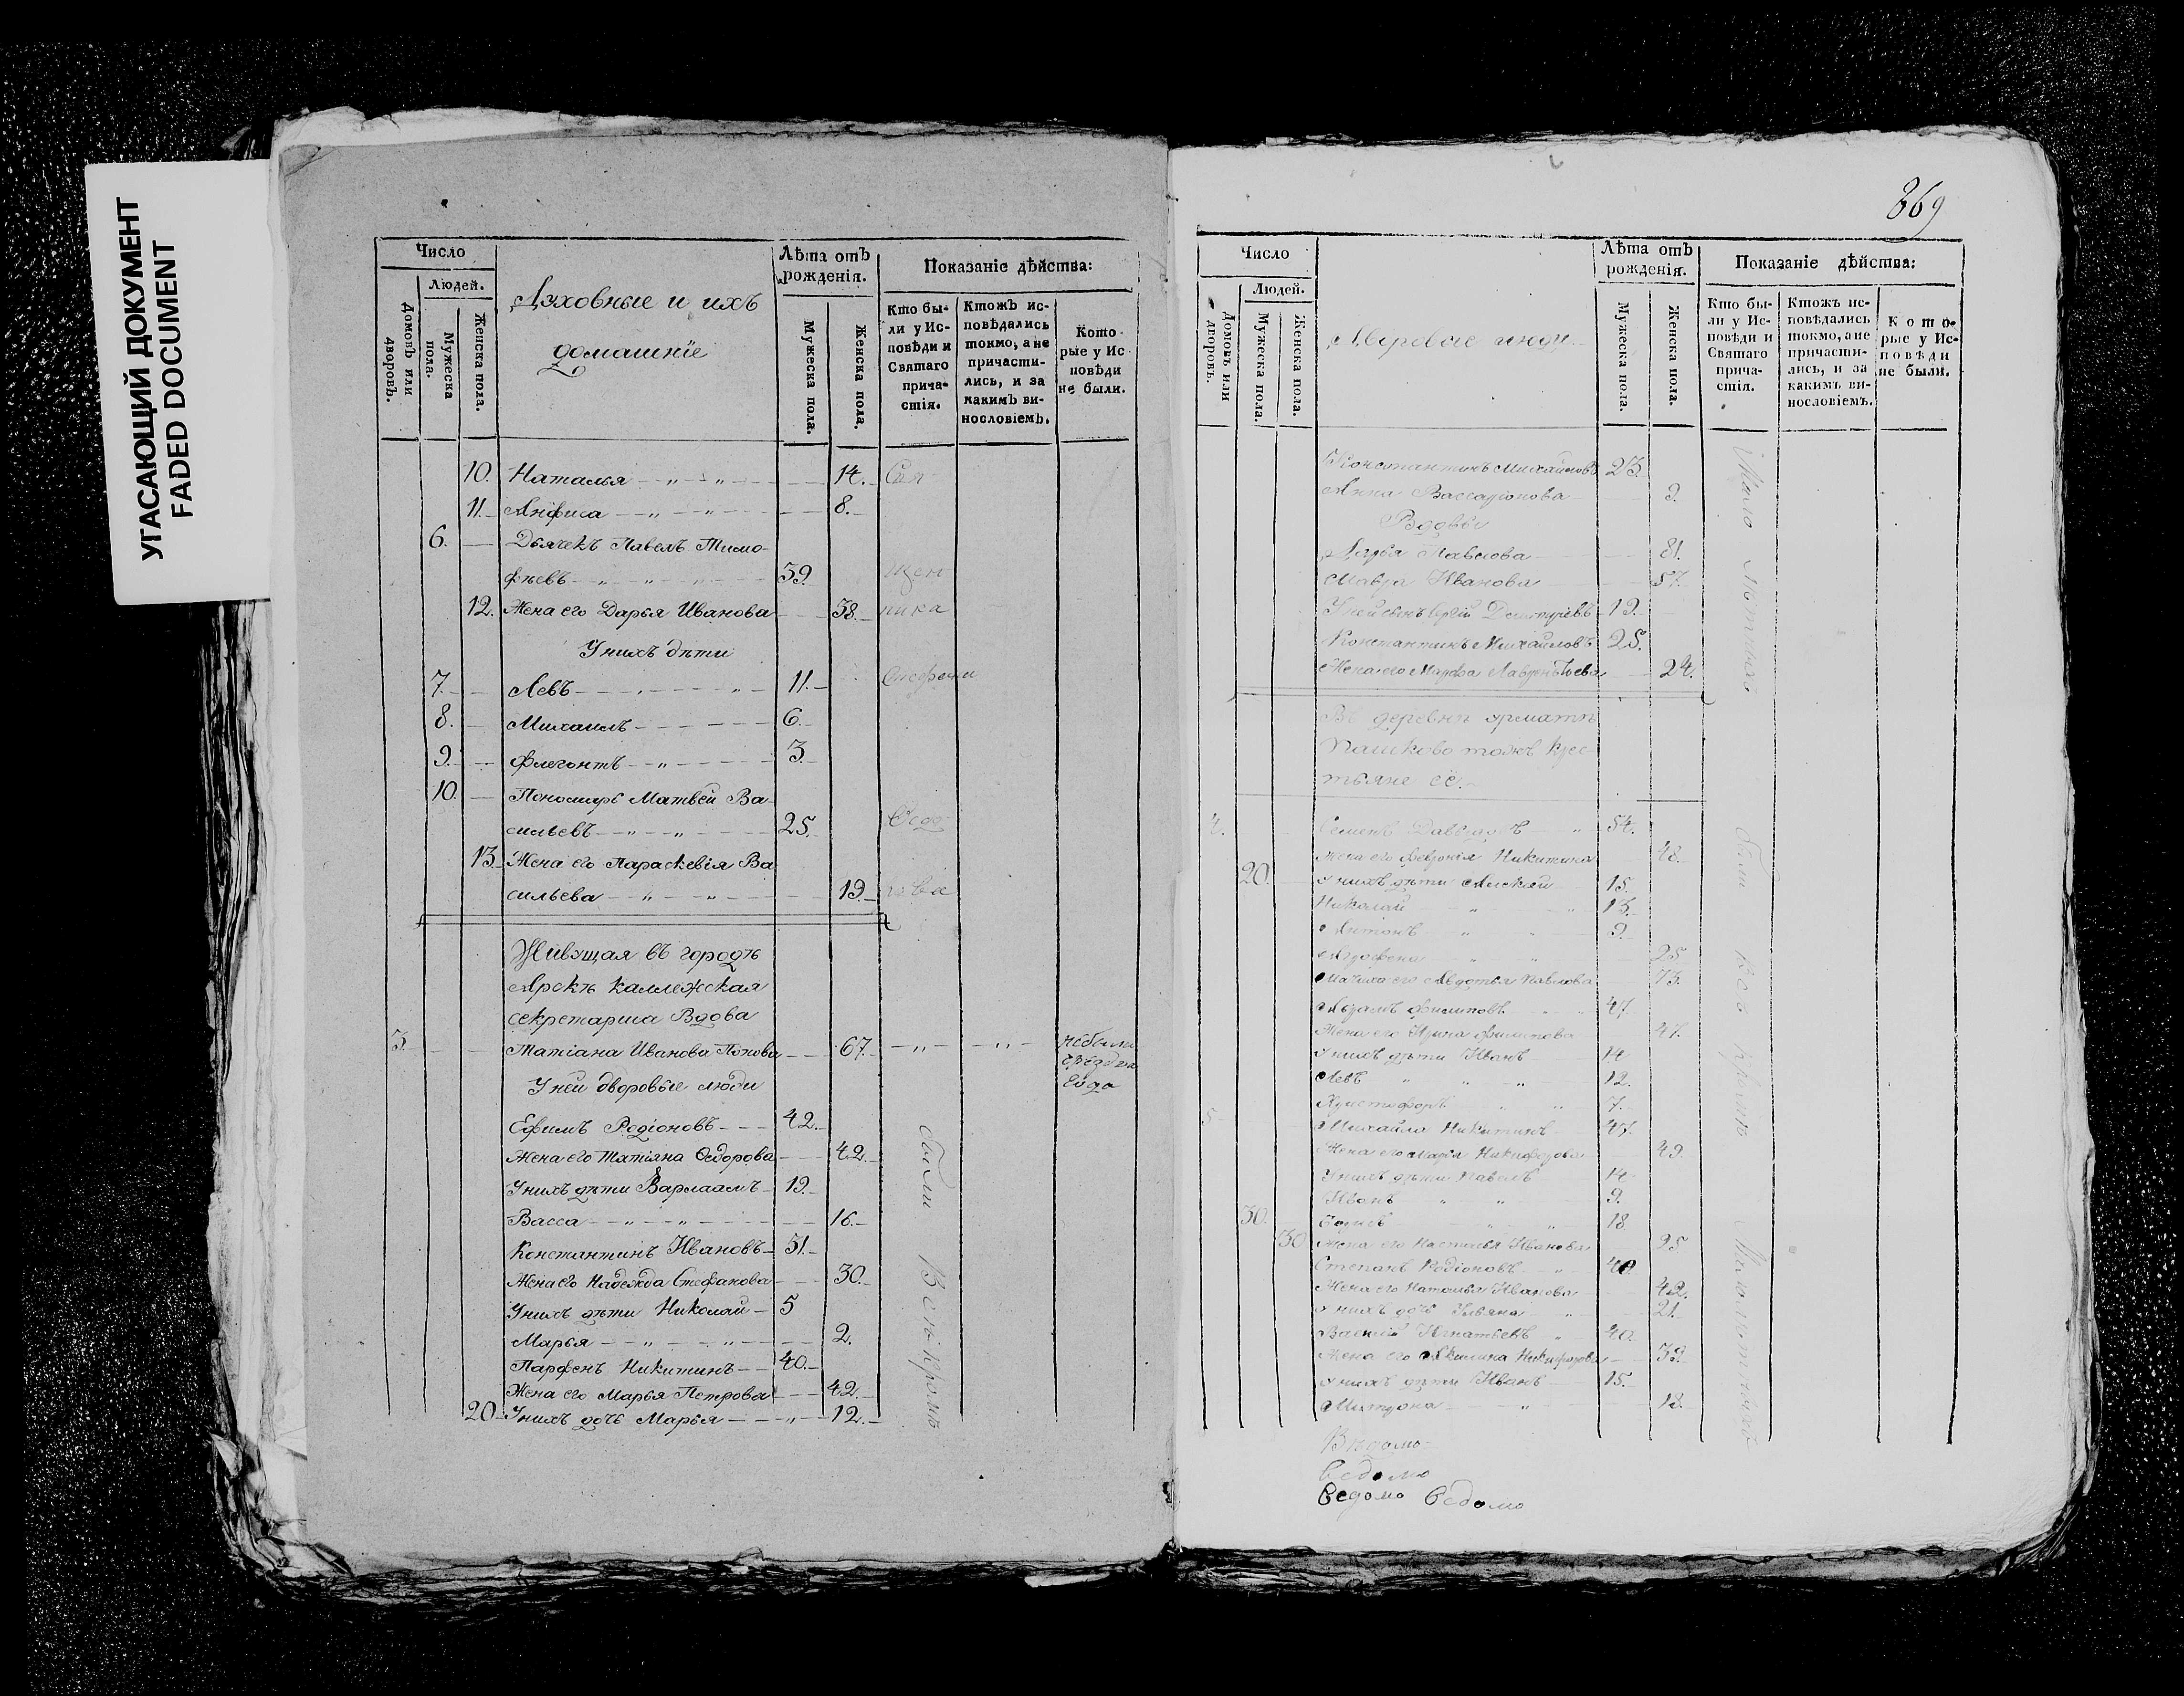 УГАСАЮЩИЙ ДОКУМЕНТ
FADED DOCUMENT
Число
Людей.
Домовъ или дворовъ.
Мужеска пола.
Женска пола.
Духовные и ихъ
домашніе
Лѣта отъ
рожденія.
Мужеска пола.
Женска пола.
Показаніе дѣйства:
Кто бы-
ли у Ис-
повѣди и
Святаго
прича-
стія.
Ктожъ ис-
повѣдались
токмо, а не
причасти-
лись, и за
какимъ ви-
нословіемъ.
Кото-
рые у Ис
повѣди
не были.
10. Наталья 14.
11. Анфиса 8.
6. Дьячекъ Павелъ Тимо-
фѣевъ 39.
12. Жена его Дарья Иванова 38.
У нихъ дѣти
7. Левъ 11.
8. Михаилъ 6.
9. Флегонтъ 3
10. Пономарь Матвей Ва-
сильевъ 25.
13. Жена его Параскевія Ва
сильева 19.
Живущая въ городѣ
Арскѣ каллежская
секретарша Вдова
3. Татіана Иванова Попова 67. небыла
У ней дворовые люди
Ефимъ Родіоновъ 42.
Жена его Татіяна Федорова 42.
У нихъ дѣти Варлаамъ 19.
Васса 16.
Константинъ Ивановъ 31.
Жена его Надежда Стефанова 30.
У нихъ дѣти Николай 5
Марья 2.
Парфенъ Никитинъ 40.
Жена его Марья Петрова 42.
20 У нихъ дочь Марья 12.
были Всѣ кромѣ
869
Число
Людей.
Домовъ или дворовъ.
Мужеска пола.
Женска пола.
Дворовые люди
Лѣта отъ
рожденія.
Мужеска пола.
Женска пола.
Показаніе дѣйства:
Кто бы-
ли у Ис-
повѣди и
Святаго
прича-
стія.
Ктожъ ис-
повѣдались
токмо, а не
причасти-
лись, и за
какимъ ви-
нословіемъ.
Кото-
рые у Ис-
повѣди
не были.
Константинъ Михайловъ 23.
Анна 9.
Вдовы
Дарья Павлова 81.
Мавра Иванова 57.
У ней сынъ Сергій Дмитріевъ 19.
Константинъ Михайловъ 25.
Жена его Марфа Лаврентьева 24.
Малолѣтныхъ
Въ деревнѣ
Пашково тожъ крес
тьяне её.
4. Семенъ Давыдовъ 54.
Жена его Февронія Никитина 48.
20. У нихъ дѣти Алексей 15.
Николай 13.
Антонъ 9.
25
Мачиха его Авдотья Павлова 73.
Абрамъ Филиповъ 47.
Жена его Ирина Филипова 47.
У нихъ дѣти Иванъ 14
Левъ 12.
Христофоръ 7.
5 Михайло Никитинъ 47.
Жена его Марія Никифорова 49.
У нихъ дѣти Павелъ 14
Иванъ 9.
30. 18
30 Жена его Настасья Иванова 25
Степанъ Родіоновъ 40
Жена его Наталья Иванова 42.
У нихъ дочь Ульяна 21.
Василій Игнатьевъ 40.
Жена его Акилина Никифорова 39.
У нихъ дѣти Иванъ 15.
Митрона 18.
были Всѣ кромѣ Малолѣтныхъ
Ведомо
Ведомо Ведомо